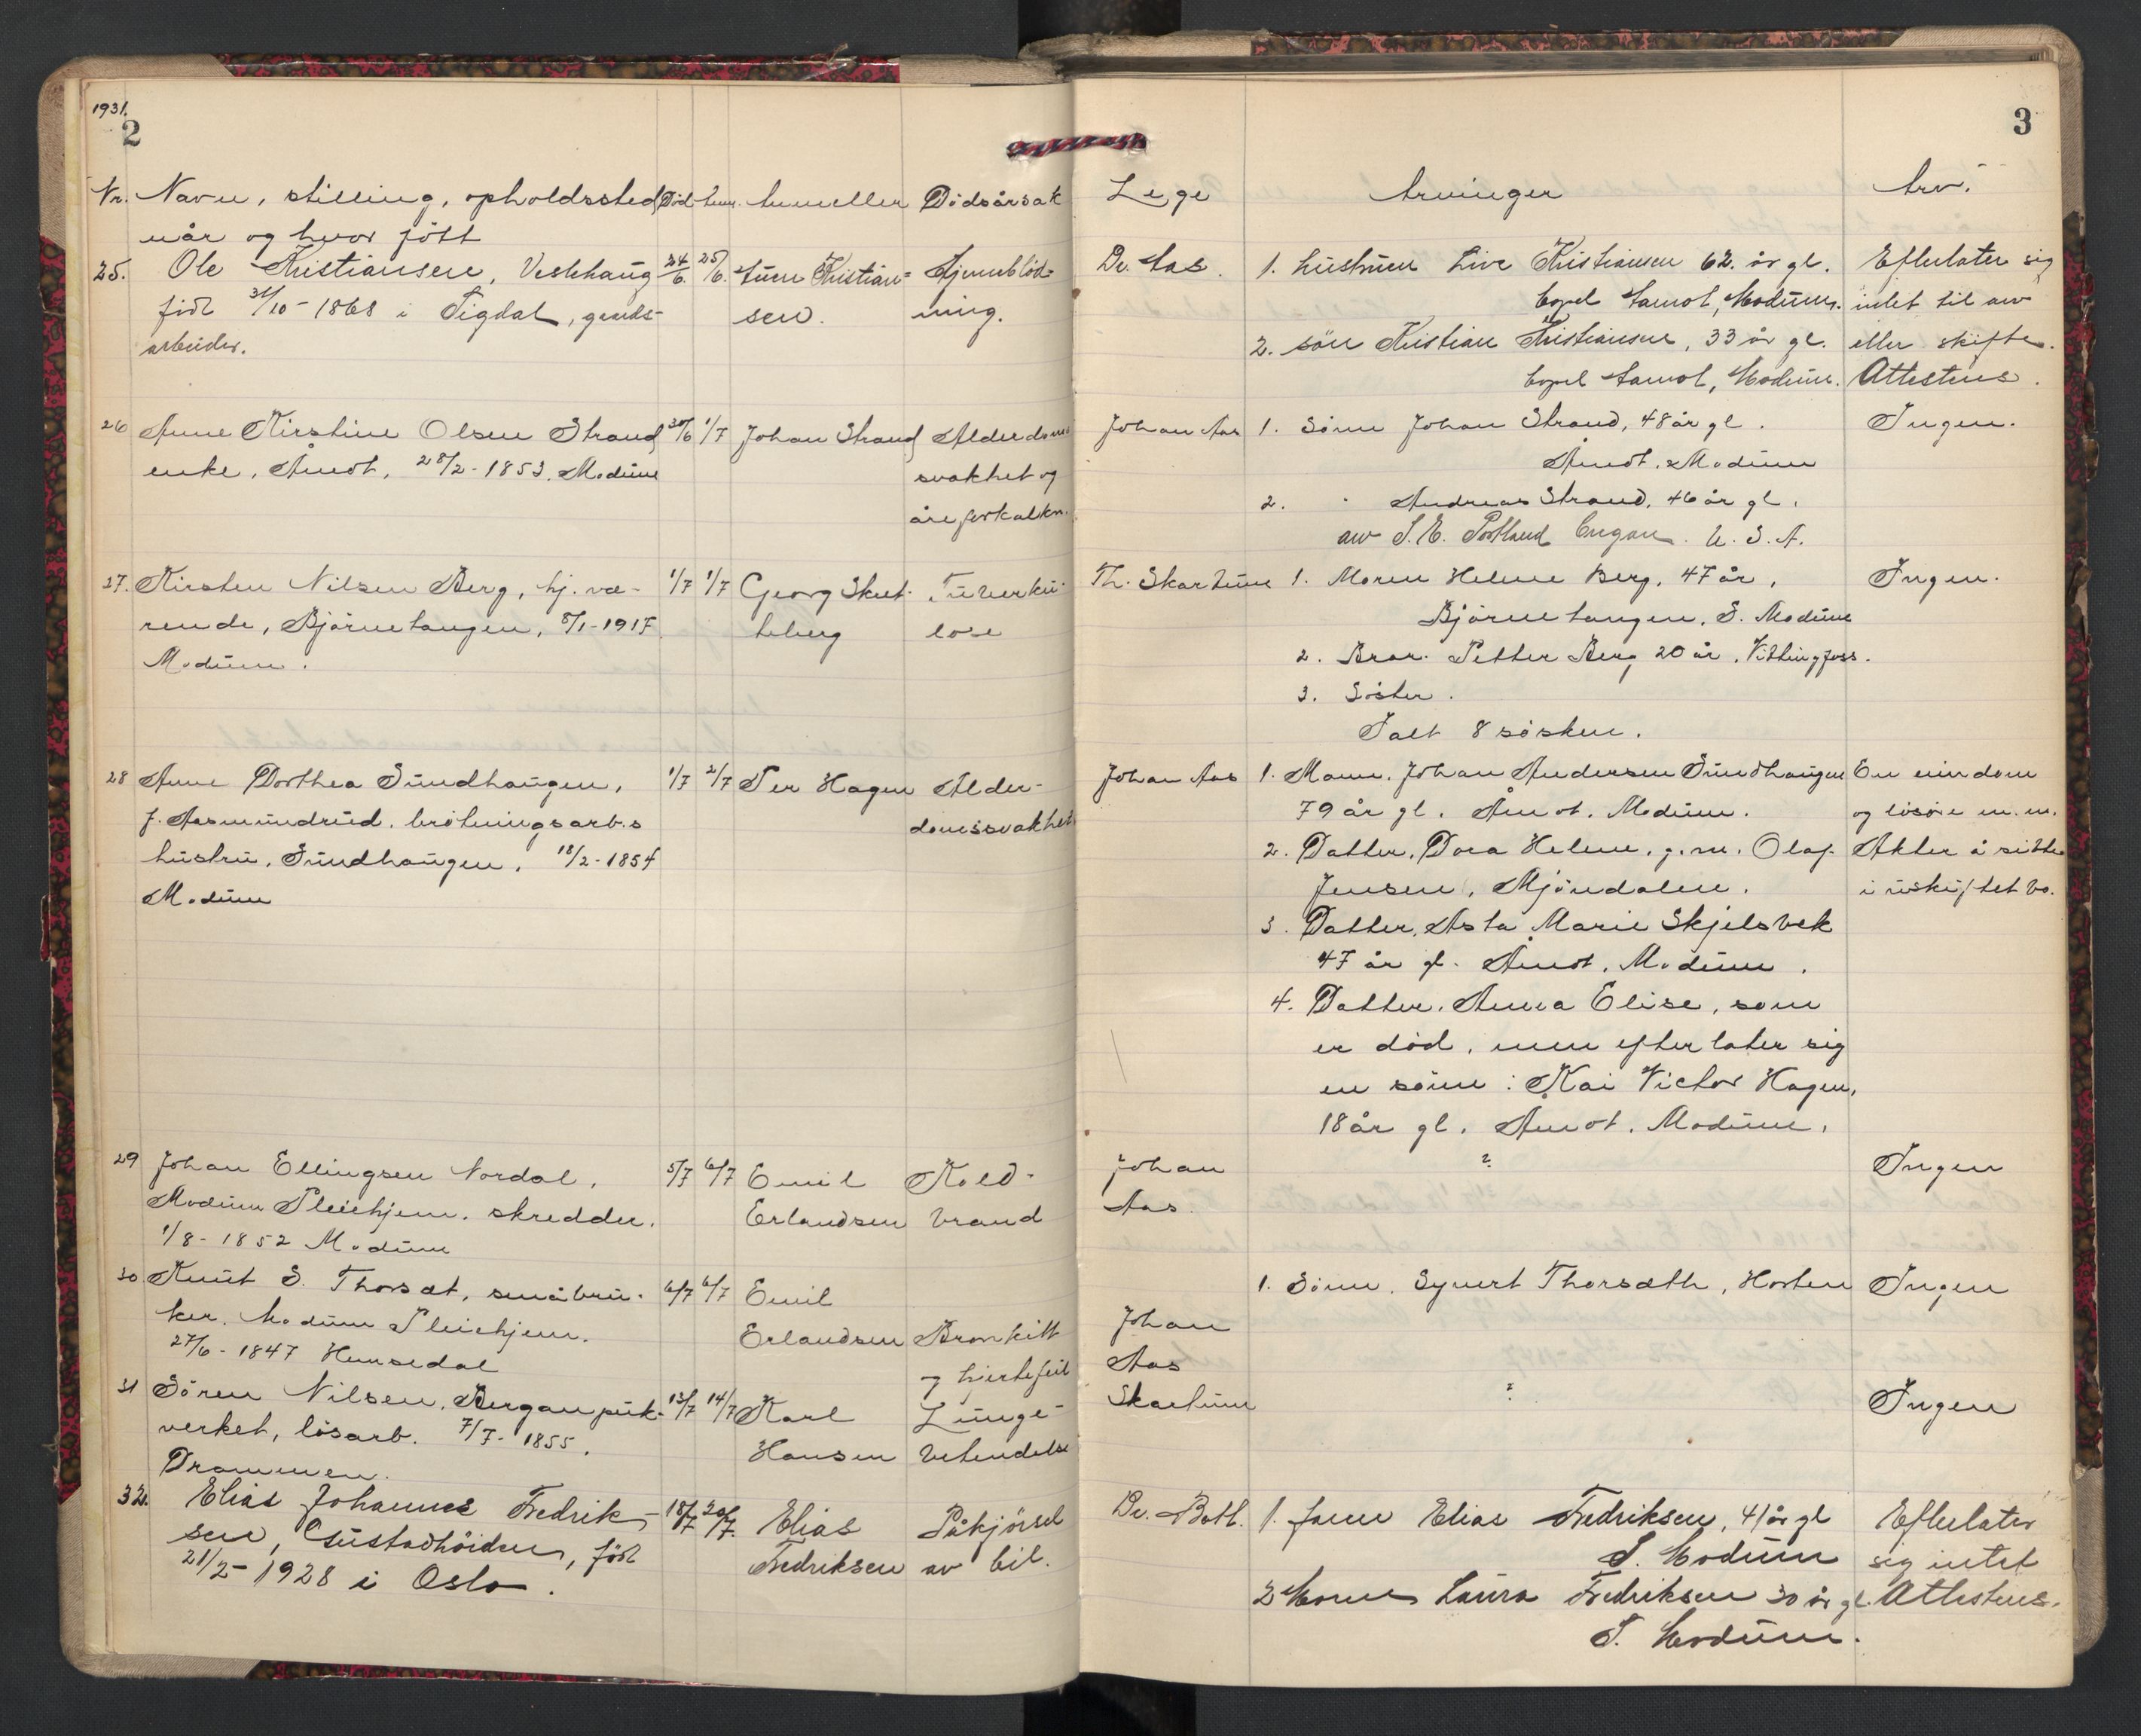 1931.
2
Nr. Navn, stilling, opholdssted Død Anm. Anmelder Dödsårsak
når og hvor fött
25. Ole Kristiansen, Vestehaug 24/6. 25/6. Kristian- Hjerneblöd-
född 31/10-1868 i Sigdal, gårds- sen. ning.
arbeider.
26 Anne Kirstine Olsen Strand 30/6 1/7 Johan Strand Alderdoms
enke, Åmot, 28/2-1853. Modum svakhet og
åreforkalkn.
27. Kirsten Nilsen Berg, hj. væ- 1/7 1/7 Georg Skut- Tuberku-
rende, Bjørnetangen, 8/1-1917 teberg lose
Modum.
28 Anne Dorthea Sundhaugen, 1/7 2/7 Per Hagen Alder-
f. Aasmundrud. brötningsarb.s domssvakhet
hustru, Sundhaugen, 18/2-1854
Modum
29 Johan Ellingsen Nordal, 5/7 6/7 Emil Kold-
Modum Pleiehjem. skredder. Erlandsen brand
1/8-1852 Modum
30 Knut S. Thorsæt, småbru- 6/7 6/7 Emil
ker. Modum Pleiehjem. Erlandsen Bronkitt
27/6-1847 Hemsedal og hjertefeil
31 Sören Nilsen, Bergan puk- 13/7 14/7 Karl Lunge-
verket, lösarb. 7/7-1855. Hansen betendelse
Drammen.
32. Elias Johannes Fredrik- 18/7 20/7. Elias Påkjörsel
sen, Gustadhöiden, född Fredriksen av bil.
21/2-1928 i Oslo.
3
Lege Arvinger Arv.
Dr. Aas. 1. hustruen Live Kristiansen 62. år gl. Efterlater sig
bopel Aamot, Modum. intet til arv
2. sön Kristian Kristiansen, 33 år gl. eller skifte.
bopel Aamot, Modum. Attesteres.
Johan Aas 1. Sönn Johan Strand, 48 år gl. Ingen.
Åmot. Modum
2. " Andreas Strand, 46 år gl.
S.E. Portland U.S.A.
Th. Skartum 1. Moren Helene Berg, 47 år, Ingen.
Bjørnetangen, S. Modum
2. Bror. Petter Berg 20 år, Vittingfoss.
3. Söster.
Ialt 8 søsken.
Johan Aas 1. Mann. Johan Andersen Sundhaugen En eiendom
79 år gl. Åmot. Modum. og lösöre m.m.
2. Datter, Dora Helene, g.m. Olaf Akter å sitte
Jensen, Mjöndalen. i uskiftet bo.
3. Datter, Asta Marie Skjelsbek
47 år gl. Åmot, Modum.
4. Datter, Anna Elise, som
er död, men efterlater sig
en sönn: Kai Victor Hagen,
18 år gl. Åmot. Modum.
Johan ? Ingen
Aas.
1. Sönn. Syvert Thorsæth, Horten Ingen
Johan
Aas
Skartum ? Ingen
Dr. Both. 1. faren Elias Fredriksen, 41 år gl Efterlater
S. Modum sig intet
2 Moren Laura Fredriksen 30 år gl. Attesteres.
S. Modum.